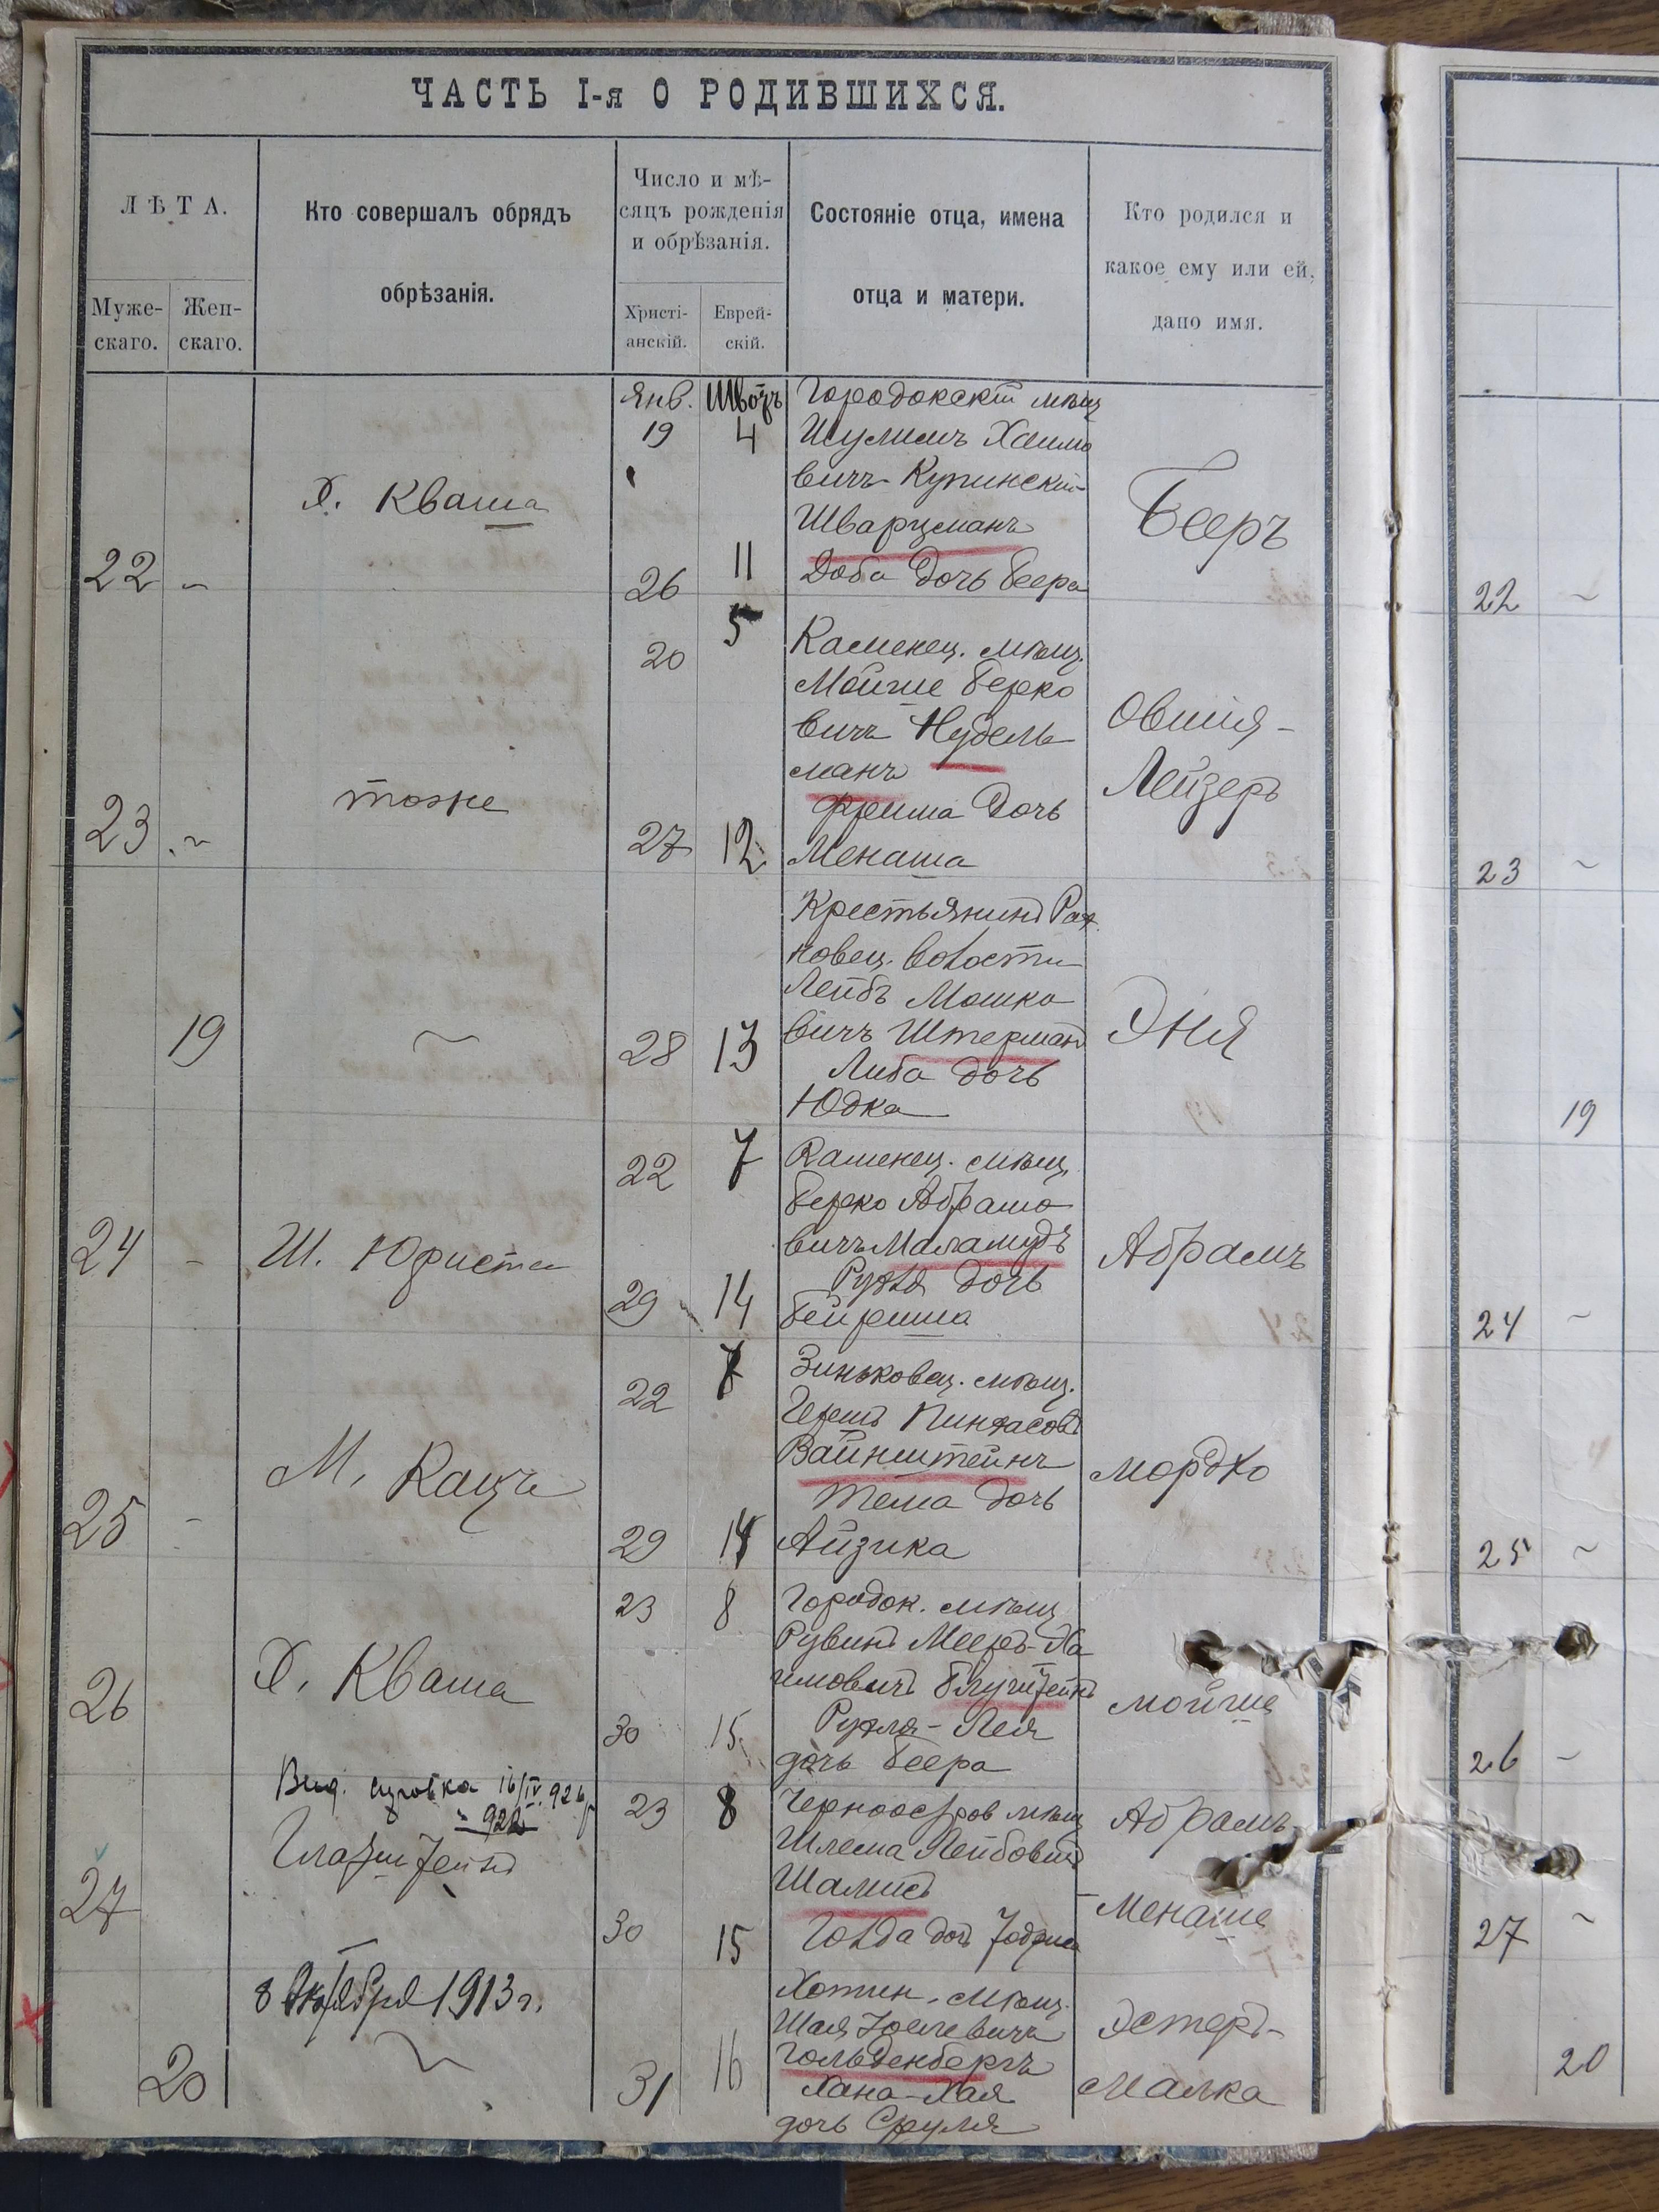 ЧАСТЬ I-я О РОДИВШИХСЯ.
ЛѢТА.
Муже-
скаго.
Жен-
скаго.
Кто совершалъ обрядъ
обрѣзанія.
Число и мѣ-
сяцъ рожденія
и обрѣзанія.
Христі-
анскій.
Еврей-
скій.
Состояніе отца, имена
отца и матери.
Кто родился и
какое ему или ей,
дано имя.
22 ~
Х. Кваша
Янв. Швотъ
19 4
26 11
Городокскій мѣщ
Шулимъ Хаимо
вичъ Купинскій
Шварцманъ
Доба дочь Беера
Бееръ
22 ~
23 ~
тоже
20 5
27 12
Каменец. мѣщ.
Мойше Берко
вичъ Нудель
манъ
Фрима дочь
Менаша
Овшия-
Лейзеръ
23 ~
19
~
28 13
Крестьянинъ Рах
новец. волости
Лейбъ Мошко
вичъ Штерманъ
Либа дочь
Юдка
Эня
19
24 -
Ш. Юфистъ
22 7
29 14
Каменец. мѣщ.
Берко Абрамо
вичъ Маламудъ
Рухля дочь
Бейриша
Абрамъ
24 ~
25 -
М. Кацъ
22 7
29 14
Зиньковец. мѣщ.
Гершъ Пинхасовъ
Вайнштейнъ
Тема дочь
Айзика
Мордко
25 ~
26
Х. Кваша
23 8
30 15
Городок. мѣщ
Рувинъ Мееръ-Ха
имовичъ
Рухля-Лея
дочь Беера
Мойше
26 ~
27
16/IV 926
Глазштейнъ
23 8
30 15
Черноостров мѣщ
Шлема Лейбовичъ
Шамисъ
Голда доч
Абрамъ
-Менаше
27 ~
8 Октября 1913 г.
20
~
31 16
Хотин. мѣщ.
Шая Іоелевичъ
Гольденбергъ
Хана-Хая
дочь Сруля
Эстеръ-
Малка
20